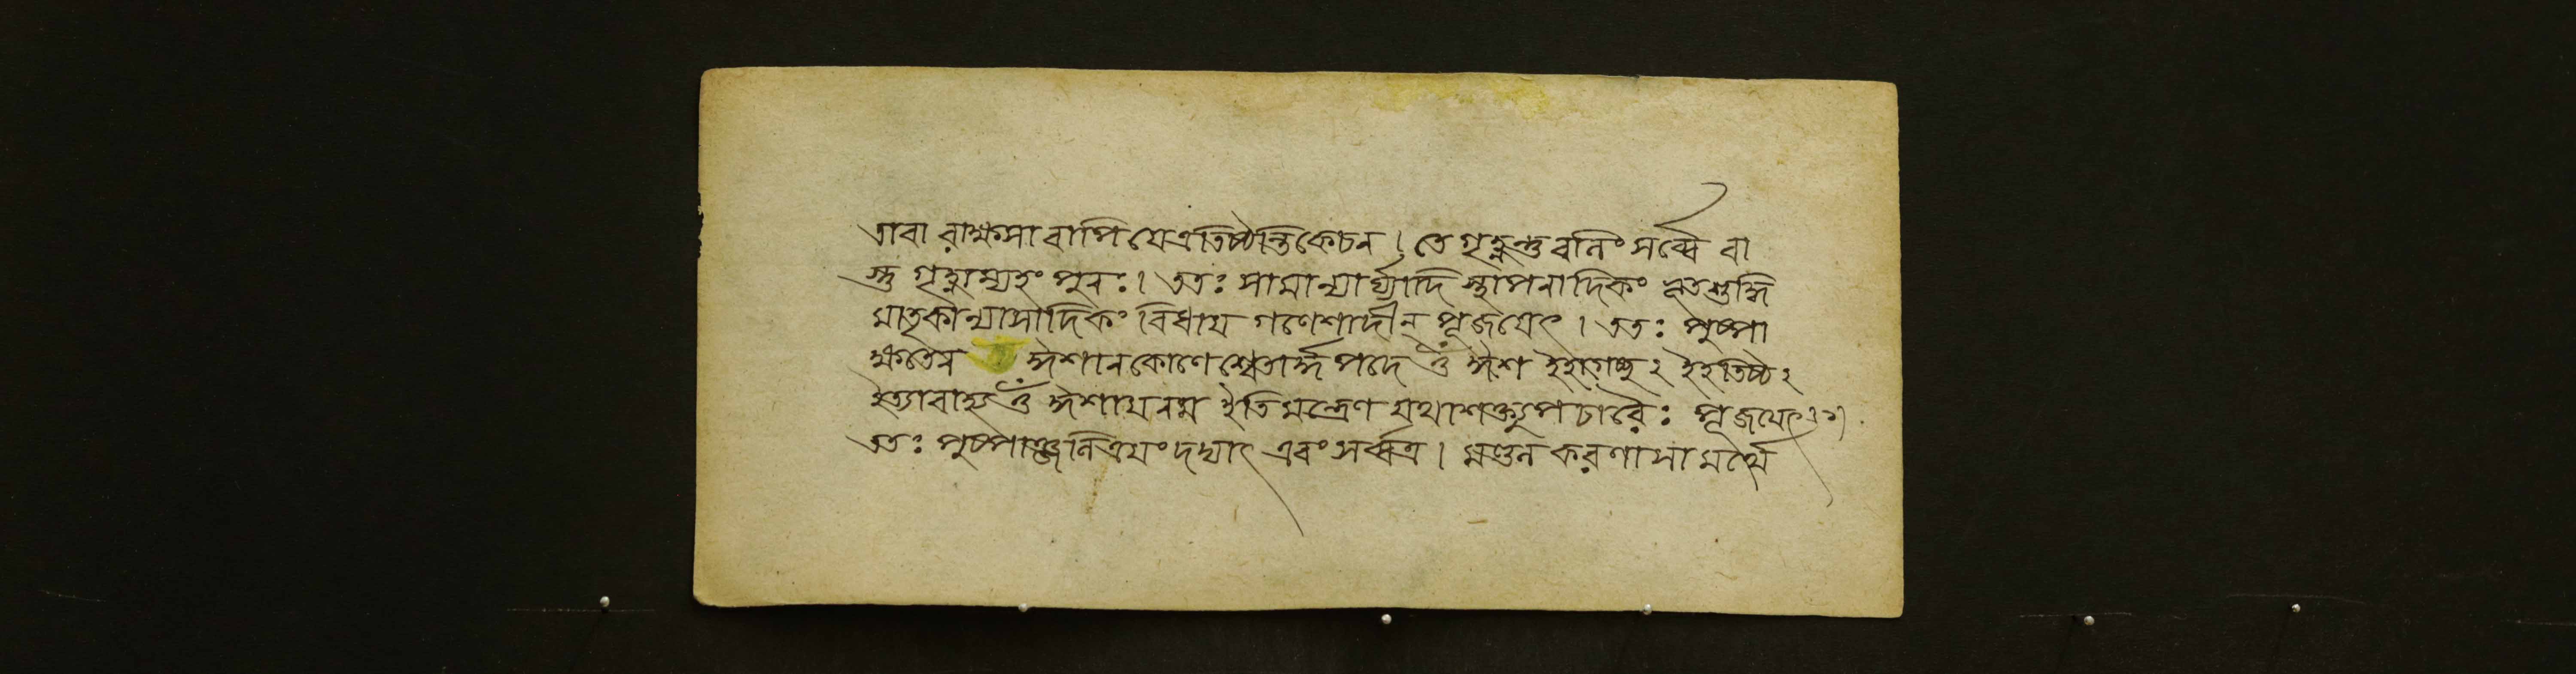 তাবা রাক্ষসা বাপি যেঽত্র তিষ্ঠন্তি কেচন । তে গৃহ্ণন্তু বলিং সর্ব্বে বা
স্তু গৃহ্ণাম্যহং পুনঃ । ততঃ সামান্যার্ঘ্যাদি স্থাপনাদিকং ভূতশুদ্ধি
মাতৃকান্যাসাদিকং বিধায় গণেশাদীন্ পূজয়েৎ । ততঃ পুষ্পা
ক্ষতেন ঈশানকোণে শ্বেতার্দ্ধপদে ওঁ ঈশ ইহাগচ্ছ ২ ইহ তিষ্ঠ ২
ইত্যাবাহ্য ওঁ ঈশায় নম ইতি মন্ত্রেণ যথাশক্ত্যুপচারৈঃ পূজয়েৎ
ততঃ পুষ্পাঞ্জলিত্রয়ং দদ্যাৎ এবং সর্ব্বত্র । মণ্ডল করণাসামর্থ্যে